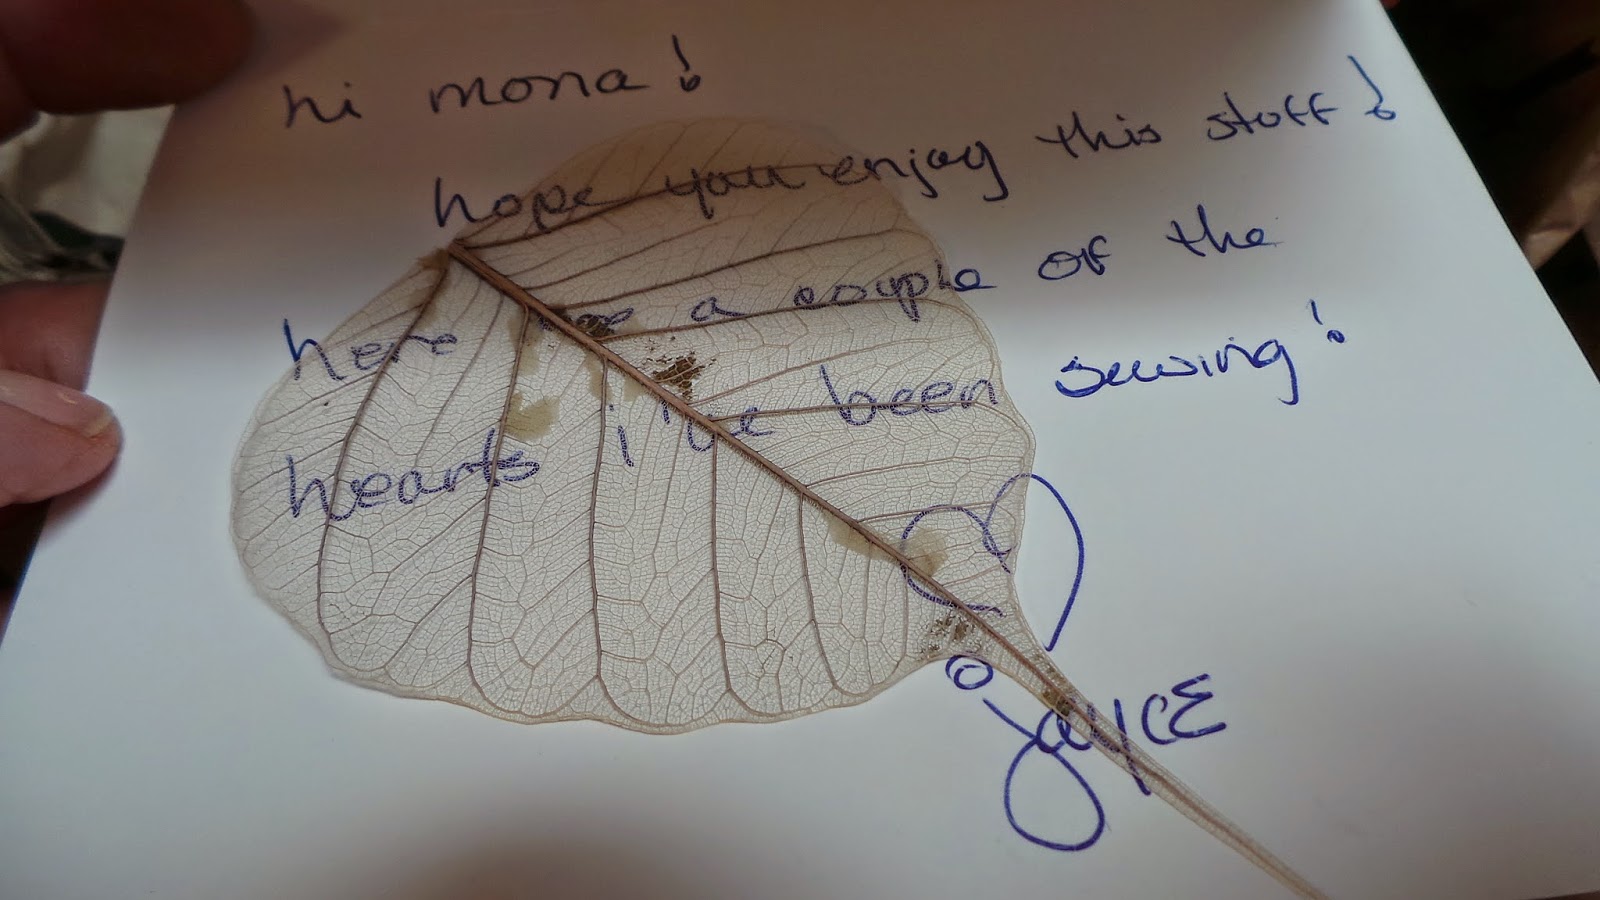 hi mona!
hope you enjoy this stuff!
here are a couple of the
hearts i've been sewing!
jayce